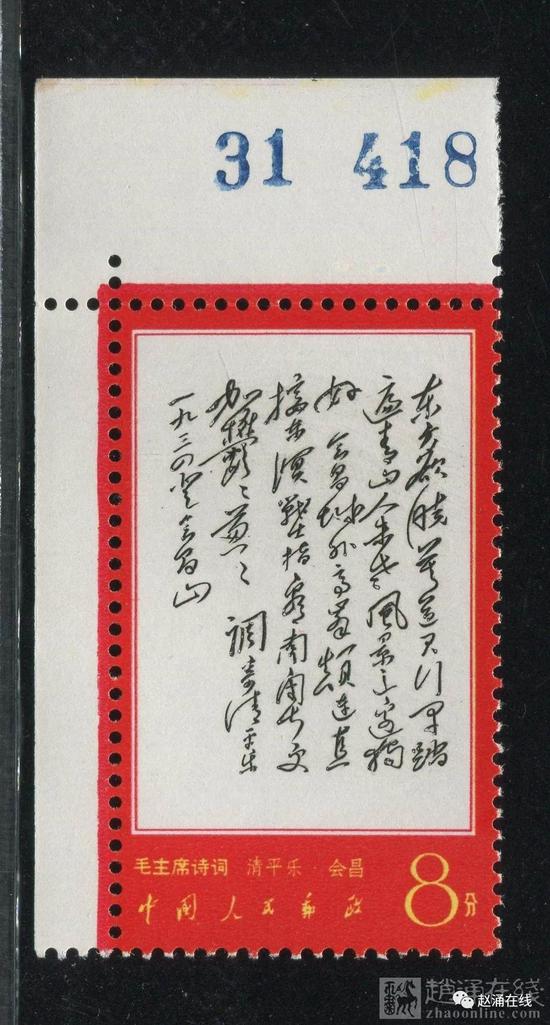 31 418
东方欲晓莫道君行早踏
遍青山人未老風景这边独
好 会昌城外高峯颠连直
接东溟戰士指看南粤更
加欝〻葱〻 調寄清平乐
一九三四登会昌山
毛主席诗词 清平乐·会昌
中国人民邮政 8分
赵涌在线
趙涌在綫
zhaoonline.com